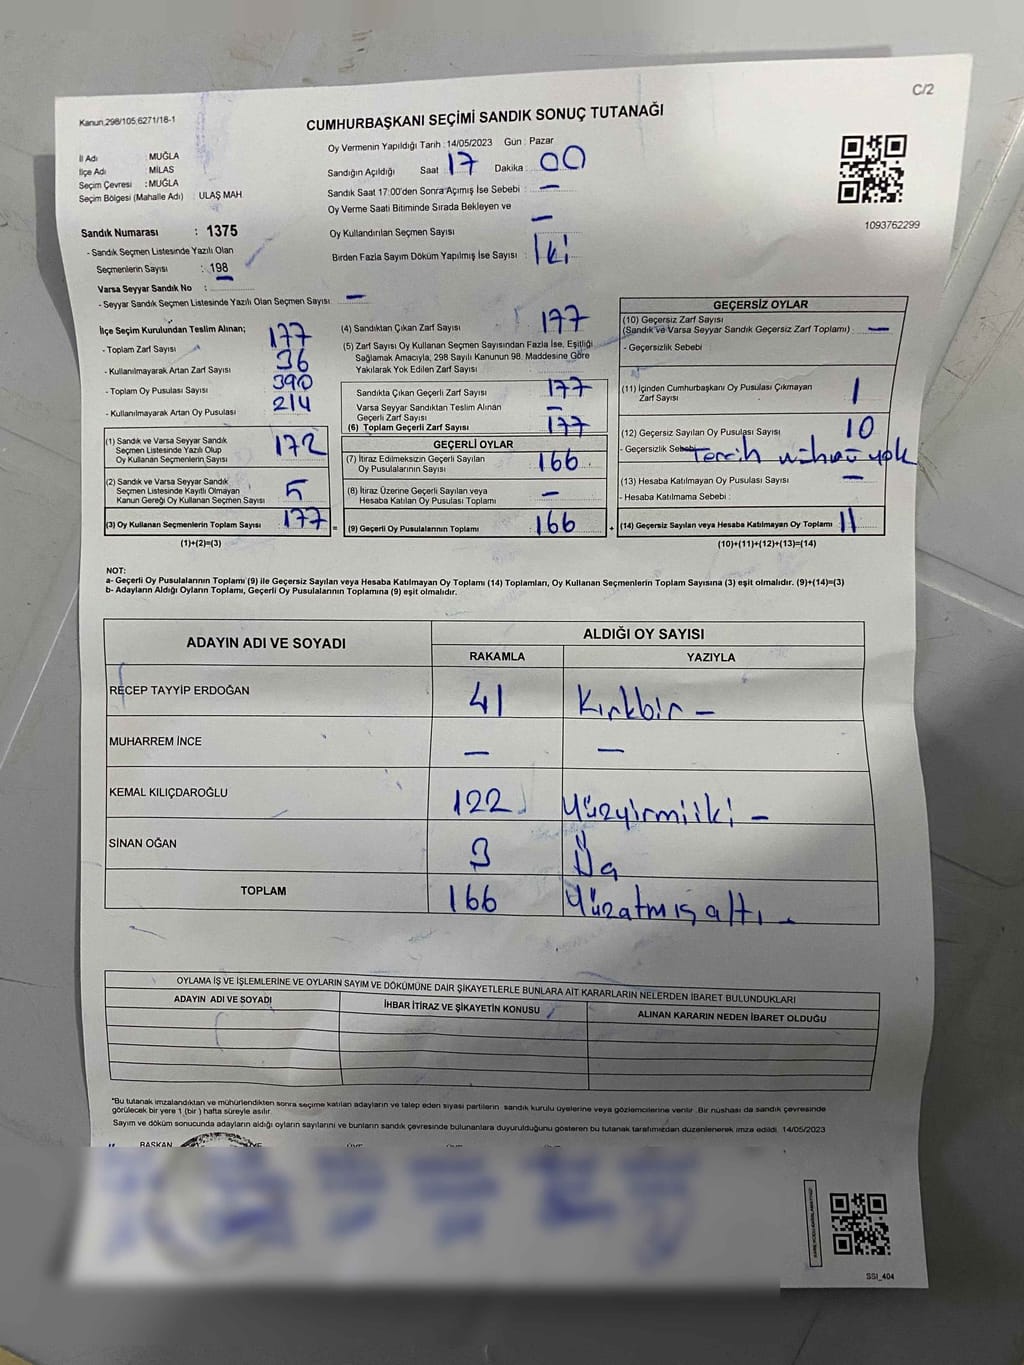 C/2
Kanun.298/105.6271/16-1
CUMHURBAŞKANI SEÇİMİ SANDIK SONUÇ TUTANAĞI
İl Adı : MUĞLA
İlçe Adı : MİLAS
Seçim Çevresi : MUĞLA
Seçim Bölgesi (Mahalle Adı) : ULAŞ MAH
Oy Vermenin Yapıldığı Tarih : 14/05/2023 Gün : Pazar
Sandığın Açıldığı Saat 17 Dakika : 00
Sandık Saat 17:00'den Sonra Açımış İse Sebebi : —
Oy Verme Saati Bitiminde Sırada Bekleyen ve
Oy Kullandırılan Seçmen Sayısı —
Birden Fazla Sayım Döküm Yapılmış İse Sayısı : İki
1093762299
Sandık Numarası : 1375
- Sandık Seçmen Listesinde Yazılı Olan
Seçmenlerin Sayısı : 198
Varsa Seyyar Sandık No :
- Seyyar Sandık Seçmen Listesinde Yazılı Olan Seçmen Sayısı: —
İlçe Seçim Kurulundan Teslim Alınan;
- Toplam Zarf Sayısı 177
- Kullanılmayarak Artan Zarf Sayısı 36
- Toplam Oy Pusulası Sayısı 390
- Kullanılmayarak Artan Oy Pusulası 214
(1) Sandık ve Varsa Seyyar Sandık
Seçmen Listesinde Yazılı Olup
Oy Kullanan Seçmenlerin Sayısı 172
(2) Sandık ve Varsa Seyyar Sandık
Seçmen Listesinde Kayıtlı Olmayan
Kanun Gereği Oy Kullanan Seçmen Sayısı 5
(3) Oy Kullanan Seçmenlerin Toplam Sayısı 177 =
(1)+(2)=(3)
(4) Sandıktan Çıkan Zarf Sayısı 177
(5) Zarf Sayısı Oy Kullanan Seçmen Sayısından Fazla İse, Eşitliği
Sağlamak Amacıyla, 298 Sayılı Kanunun 98. Maddesine Göre
Yakılarak Yok Edilen Zarf Sayısı
Sandıkta Çıkan Geçerli Zarf Sayısı 177
Varsa Seyyar Sandıktan Teslim Alınan
Geçerli Zarf Sayısı —
(6) Toplam Geçerli Zarf Sayısı 177
GEÇERLİ OYLAR
(7) İtiraz Edilmeksizin Geçerli Sayılan
Oy Pusulalarının Sayısı 166
(8) İtiraz Üzerine Geçerli Sayılan veya
Hesaba Katılan Oy Pusulası Toplamı —
(9) Geçerli Oy Pusulalarının Toplamı 166 +
GEÇERSİZ OYLAR
(10) Geçersiz Zarf Sayısı
(Sandık ve Varsa Seyyar Sandık Geçersiz Zarf Toplamı) : —
- Geçersizlik Sebebi
(11) İçinden Cumhurbaşkanı Oy Pusulası Çıkmayan
Zarf Sayısı 1
(12) Geçersiz Sayılan Oy Pusulası Sayısı 10
- Geçersizlik Sebebi Tercih mührü yok
(13) Hesaba Katılmayan Oy Pusulası Sayısı —
- Hesaba Katılmama Sebebi :
(14) Geçersiz Sayılan veya Hesaba Katılmayan Oy Toplamı 11
(10)+(11)+(12)+(13)=(14)
NOT:
a- Geçerli Oy Pusulalarının Toplamı (9) ile Geçersiz Sayılan veya Hesaba Katılmayan Oy Toplamı (14) Toplamları, Oy Kullanan Seçmenlerin Toplam Sayısına (3) eşit olmalıdır. (9)+(14)=(3)
b- Adayların Aldığı Oyların Toplamı, Geçerli Oy Pusulalarının Toplamına (9) eşit olmalıdır.
ADAYIN ADI VE SOYADI ALDIĞI OY SAYISI
RAKAMLA YAZIYLA
RECEP TAYYİP ERDOĞAN 41 Kırkbir —
MUHARREM İNCE — —
KEMAL KILIÇDAROĞLU 122 Yüzyirmiiki —
SİNAN OĞAN 3 Üç
TOPLAM 166 Yüzatmışaltı —
OYLAMA İŞ VE İŞLEMLERİNE VE OYLARIN SAYIM VE DÖKÜMÜNE DAİR ŞİKAYETLERLE BUNLARA AİT KARARLARIN NELERDEN İBARET BULUNDUKLARI
ADAYIN ADI VE SOYADI İHBAR İTİRAZ VE ŞİKAYETİN KONUSU ALINAN KARARIN NEDEN İBARET OLDUĞU
"Bu tutanak imzalandıktan ve mühürlendikten sonra seçime katılan adayların ve talep eden siyasi partilerin sandık kurulu üyelerine veya gözlemcilerine verilir. Bir nüshası da sandık çevresinde
görülecek bir yere 1 (bir) hafta süreyle asılır.
Sayım ve döküm sonucunda adayların aldığı oyların sayılarını ve bunların sandık çevresinde bulunanlara duyurulduğunu gösteren bu tutanak tarafımızdan düzenlenerek imza edildi. 14/05/2023
BAŞKAN
SSI_404